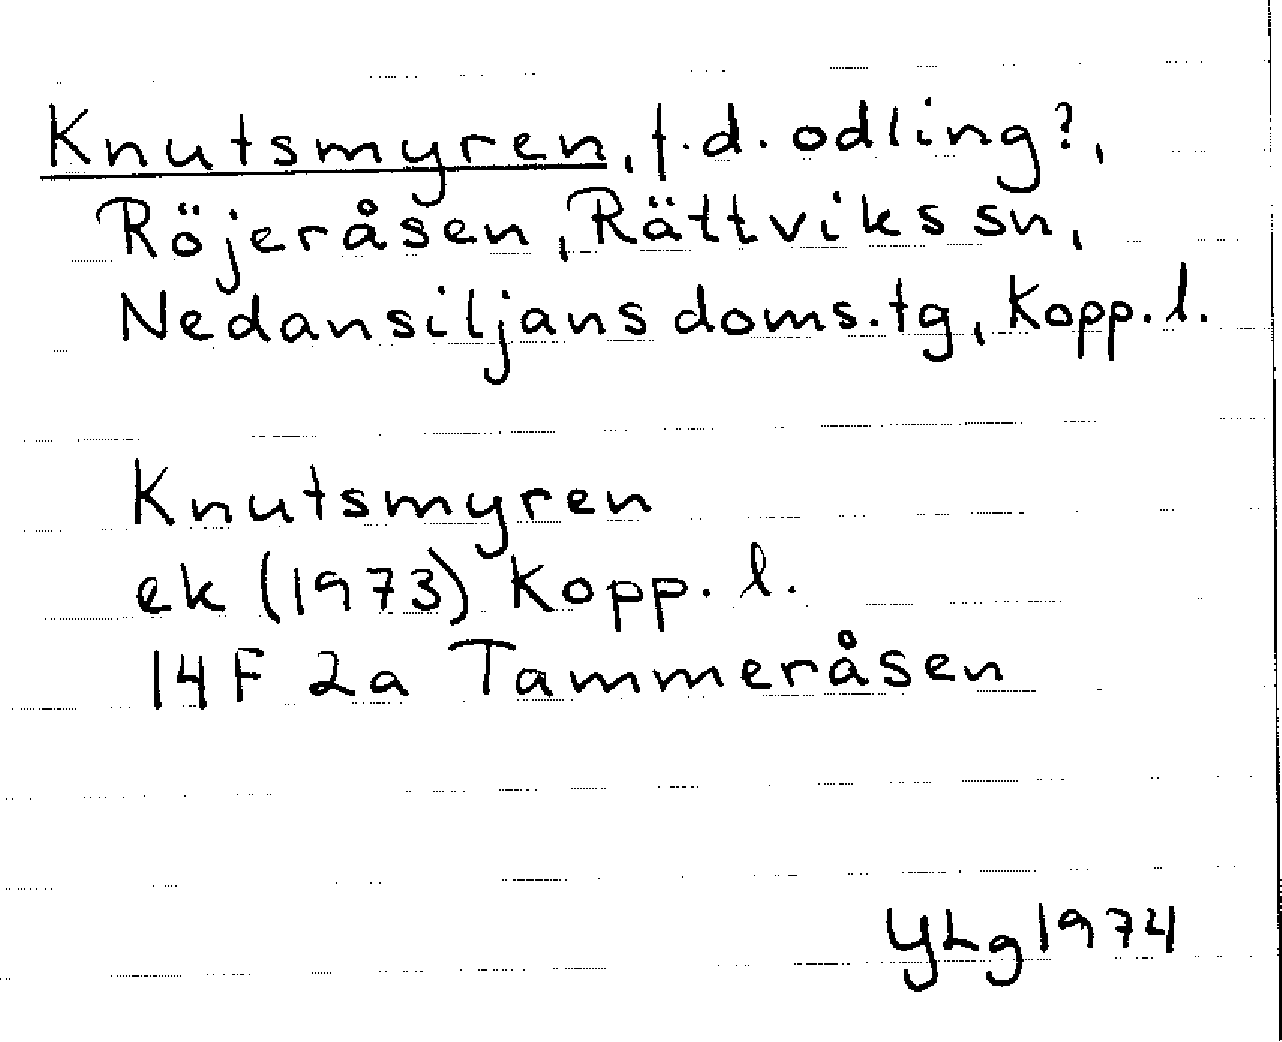 Knutsmyren, f.d. odling?,
Röjeråsen, Rättviks sn,
Nedansiljans doms.tg, Kopp. l.
Knutsmyren
ek (1973) Kopp. l.
14 F 2a Tammeråsen
YLg 1974